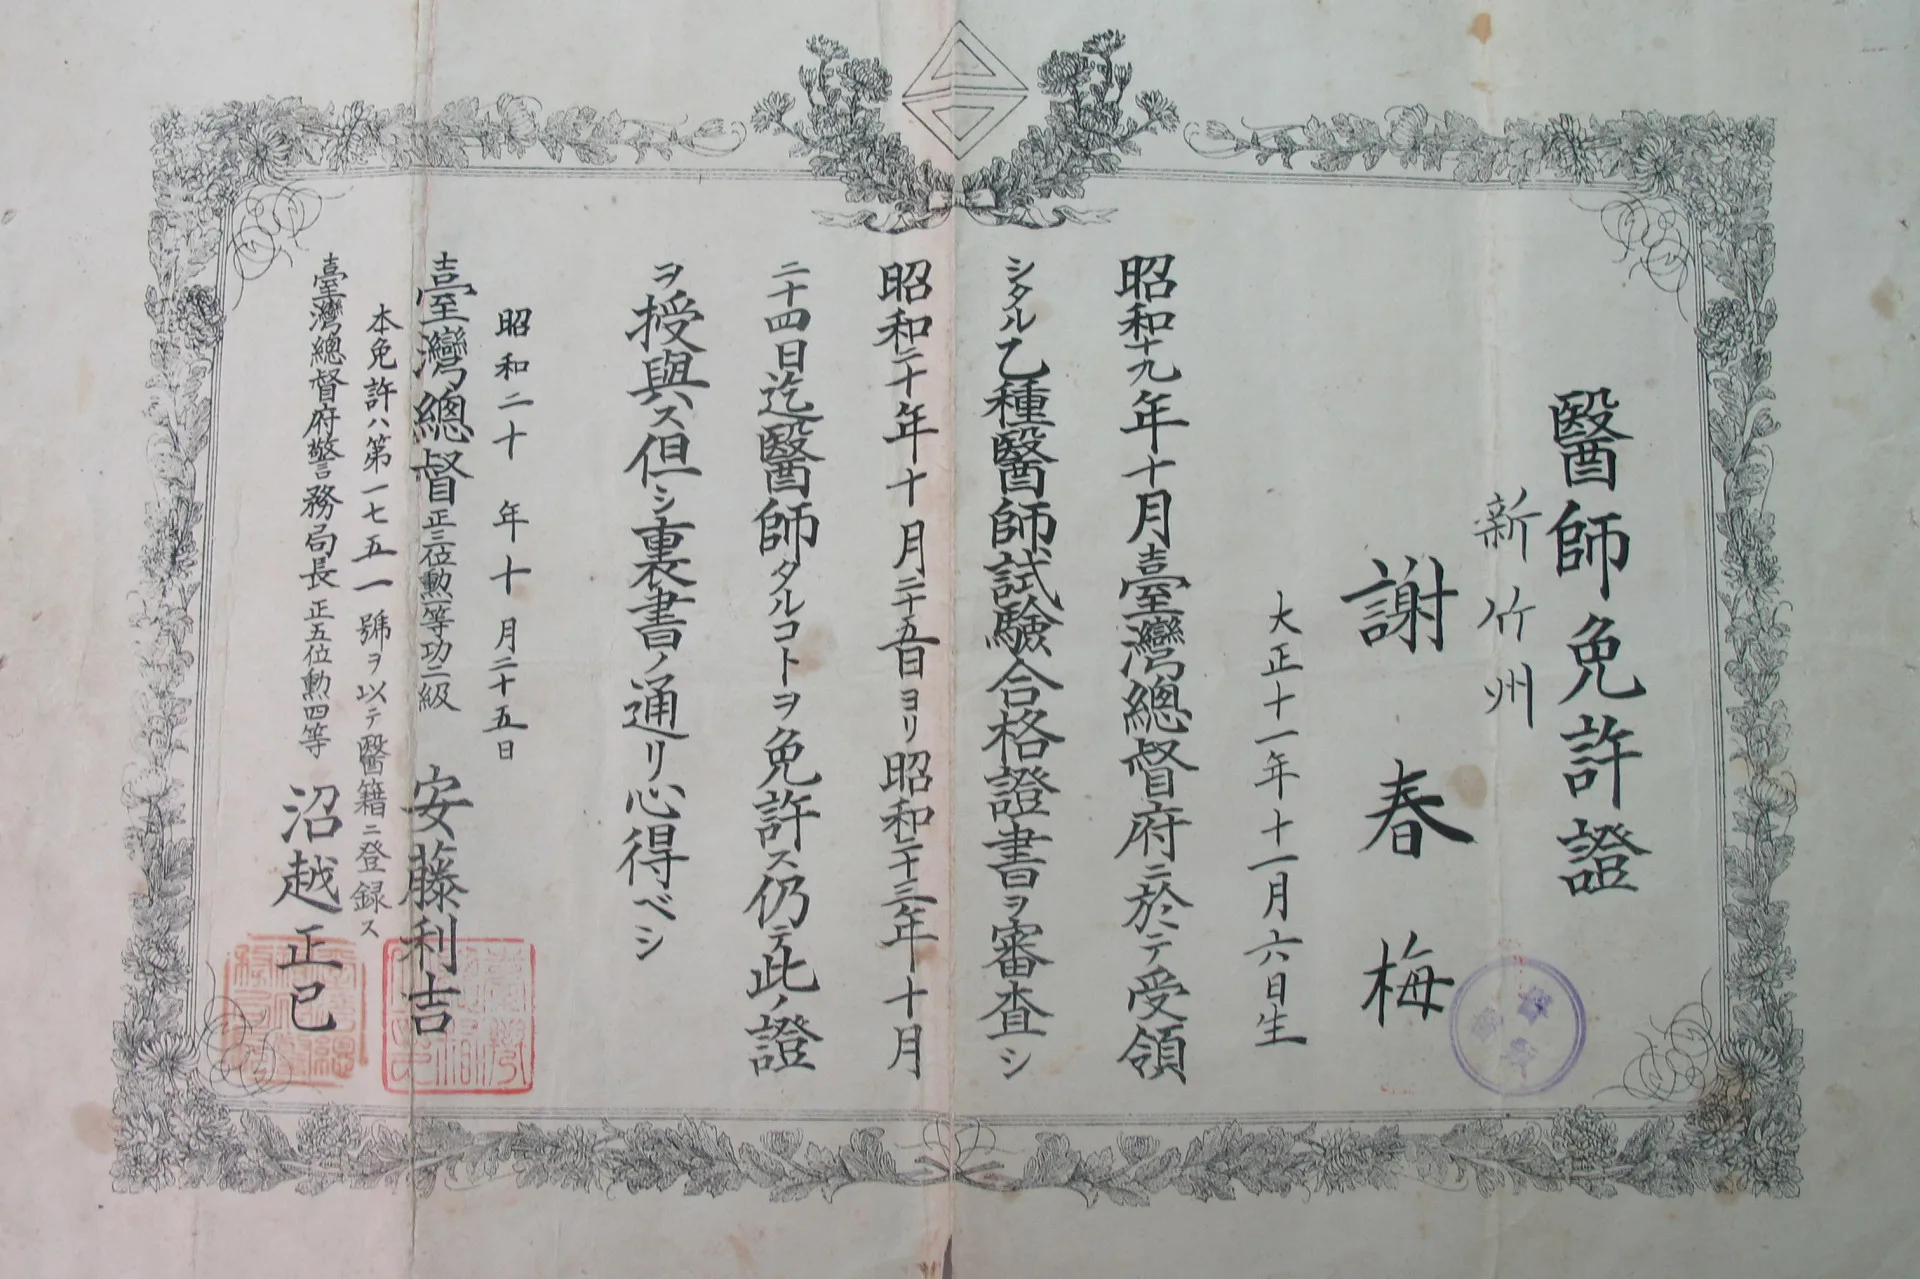 醫師免許證
新竹州
謝春梅
大正十一年十一月六日生
昭和十九年十月臺灣總督府ニ於テ受領
シタル乙種醫師試驗合格證書ヲ審査シ
昭和二十年十月二十五日ヨリ昭和二十三年十月
二十四日迄醫師タルコトヲ免許ス仍テ此ノ證
ヲ授與ス但シ裏書ノ通リ心得ベシ
昭和二十年十月二十五日
臺灣總督正三位勲一等功二級 安藤利吉
本免許ハ第一七五一號ヲ以テ醫籍ニ登録ス
臺灣總督府警務局長正五位勲四等 沼越正已